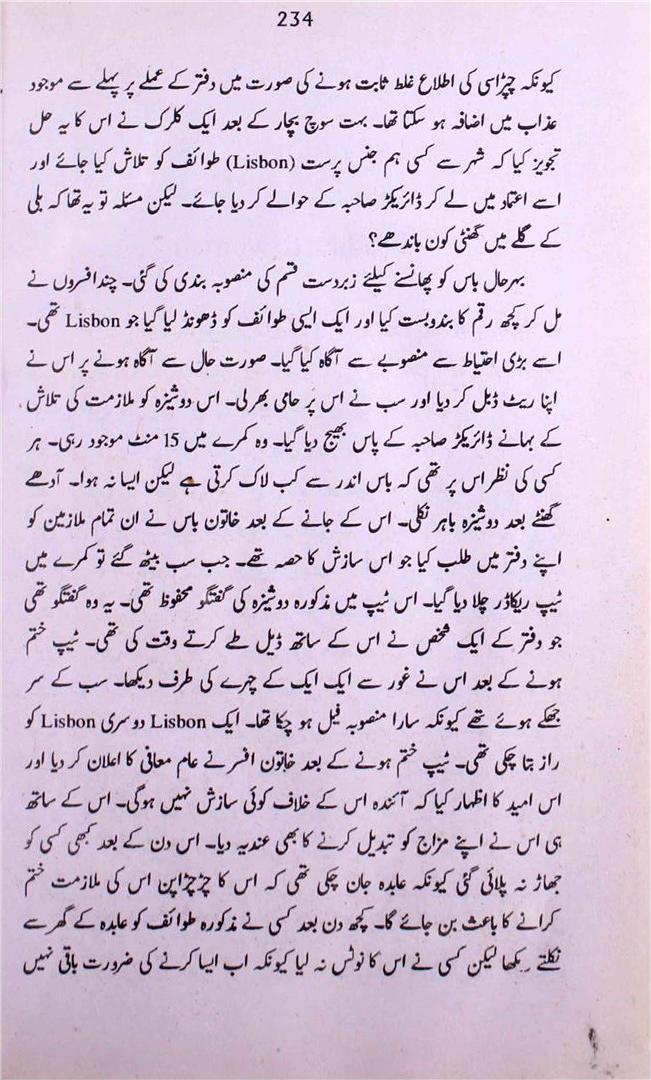 234
کیونکہ چپڑاسی کی اطلاع غلط ثابت ہونے کی صورت میں دفتر کے عملے پر پہلے سے موجود
عذاب میں اضافہ ہو سکتا تھا۔ بہت سوچ بچار کے بعد ایک کلرک نے اس کا یہ حل
تجویز کیا کہ شہر سے کسی ہم جنس پرست (Lisbon) طوائف کو تلاش کیا جائے اور
اسے اعتماد میں لے کر ڈائریکٹر صاحبہ کے حوالے کر دیا جائے۔ لیکن مسئلہ تو یہ تھا کہ بلی
کے گلے میں گھنٹی کون باندھے؟
بہرحال باس کو پھانسنے کیلئے زبردست قسم کی منصوبہ بندی کی گئی۔ چند افسروں نے
مل کر کچھ رقم کا بندوبست کیا اور ایک ایسی طوائف کو ڈھونڈ لیا گیا جو Lisbon تھی۔
اسے بڑی احتیاط سے منصوبے سے آگاہ کیا گیا۔ صورت حال سے آگاہ ہونے پر اس نے
اپنا ریٹ ڈبل کر دیا اور سب نے اس پر حامی بھر لی۔ اس دوشیزہ کو ملازمت کی تلاش
کے بہانے ڈائریکٹر صاحبہ کے پاس بھیج دیا گیا۔ وہ کمرے میں 15 منٹ موجود رہی۔ ہر
کسی کی نظر اس پر تھی کہ باس اندر سے کب لاک کرتی ہے لیکن ایسا نہ ہوا۔ آدھے
گھنٹے بعد دوشیزہ باہر نکلی۔ اس کے جانے کے بعد خاتون باس نے ان تمام ملازمین کو
اپنے دفتر میں طلب کیا جو اس سازش کا حصہ تھے۔ جب سب بیٹھ گئے تو کمرے میں
ٹیپ ریکاڈر چلا دیا گیا۔ اس ٹیپ میں مذکورہ دوشیزہ کی گفتگو محفوظ تھی۔ یہ وہ گفتگو تھی
جو دفتر کے ایک شخص نے اس کے ساتھ ڈیل طے کرتے وقت کی تھی۔ ٹیپ ختم
ہونے کے بعد اس نے غور سے ایک ایک کے چہرے کی طرف دیکھا۔ سب کے سر
جھکے ہوئے تھے کیونکہ سارا منصوبہ فیل ہو چکا تھا۔ ایک Lisbon دوسری Lisbon کو
راز بتا چکی تھی۔ ٹیپ ختم ہونے کے بعد خاتون افسر نے عام معافی کا اعلان کر دیا اور
اس امید کا اظہار کیا کہ آئندہ اس کے خلاف کوئی سازش نہیں ہوگی۔ اس کے ساتھ
ہی اس نے اپنے مزاج کو تبدیل کرنے کا بھی عندیہ دیا۔ اس دن کے بعد کبھی کسی کو
جھاڑ نہ پلائی گئی کیونکہ عابدہ جان چکی تھی کہ اس کا چڑچڑاپن اس کی ملازمت ختم
کرانے کا باعث بن جائے گا۔ کچھ دن بعد کسی نے مذکورہ طوائف کو عابدہ کے گھر سے
نکلتے دیکھا لیکن کسی نے اس کا نوٹس نہ لیا کیونکہ اب ایسا کرنے کی ضرورت باقی نہیں